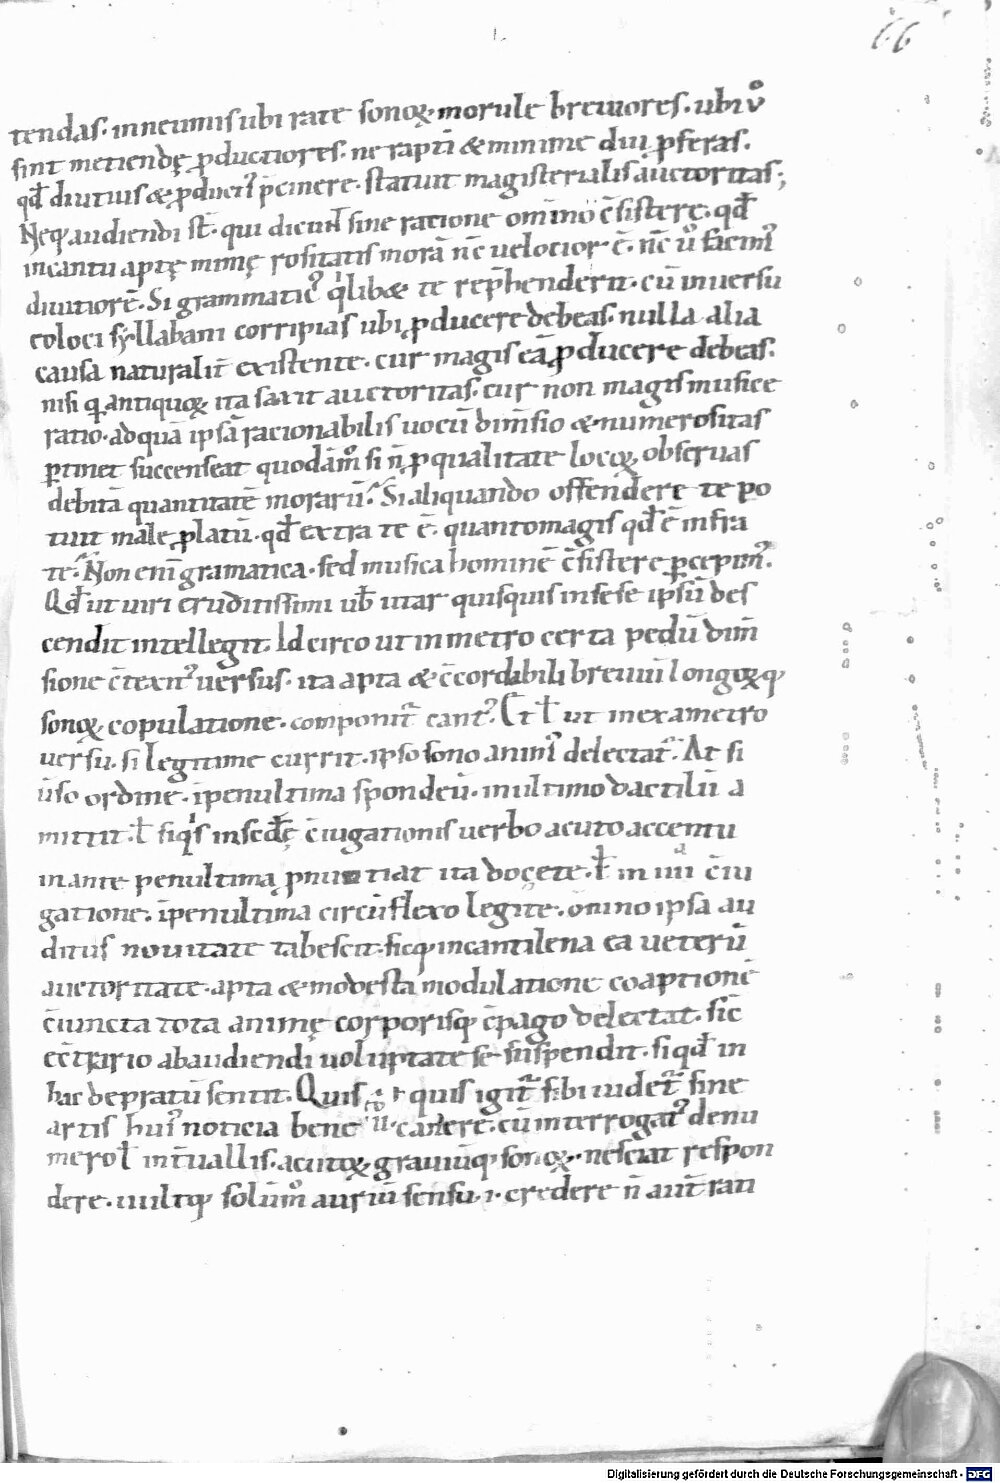 66
tendas. inneumis ubi rate sonoꝝ. morule breuiores. ubi ů
sint metiendę ꝓductiores. ne raptī & minime diu ꝓferas.
qđ diutius & ꝓduci' p̄cinere. statuit magisterialis auctoritas;
Neqꝫ audiendi st̄. qui dicunt̄ sine ratione om̄ino c̄sistere. qđ
in cantu aptę nume rositatis morā nc̄ uelocior ē. nc̄ ů facim'
diutiorē. Si grammatic' qͥlib& te rep̄henderit. cū in uersu
eo loci syllabam corripias ubi ꝓducere debeas. nulla alia
causa naturalit̄ existente. cur magis eā ꝓducere debeas.
nisi q antiquoꝝ ita sanxit auctoritas. cur non magis musice
ratio. ad quā ipsā racionabilis uocū dim̄sio & numerositas
ꝑtinet succenseat quodāmͦ si n̄ ꝓ qualitate locoꝝ obseruas
debitā quantitatē morarū. Si aliquando offendere te po
tuit male ꝓlatū. qđ extra te ē. quanto magis qđ ē infra
te. Non eni gramatica. sed musica hominē c̄sistere ꝑcepim'.
Qđ ut uiri eruditissimi ub̄ intar quisquis in sese ipsū des
cendit intellegit. Idcirco ut in metro certa pedū dim̄
sione c̄texit' uersus. ita apta & c̄cordabili breuiū longoꝝqꝫ
sonoꝝ copulatione. componit̄ cant'. Et ł ut in exametro
uersu. si legitime currit. ipso sono anim' delectat̄. At si
ūso ordine. ī penultima spondeū. in ultimo dactilū a
mittit. ł siqͥs in scđę c̄iugationis uerbo acuto accentu
in ante penultimą ꝓnuntiat ita docete. ł in iiii c̄iu
gatione. ī penultima circūflexo legite. om̄ino ipsa au
ditus nouitate tabescit. sicqꝫ in cantilena ea ueterū
auctoritate. apta & modesta modulatione coaptionē
c̄iuncta tota animę corporisqꝫ c̄pago delectat. sic̄
ec̄trario ab audiendi uoluptate se suspendit. si qđ in
hac deprauatū sentit. Quis quis igit̄ sibi uidet̄ sine
artis hui' noticia bene canere. cū interrogat' de nu
mero ł int̄uallis. acutoꝝ grauiūqꝫ sonoꝝ. nesciat respon
dere. uultqꝫ solūmͦ auriū sensui credere n̄ aut̄ rati
Digitalisierung gefördert durch die Deutsche Forschungsgemeinschaft - DFG